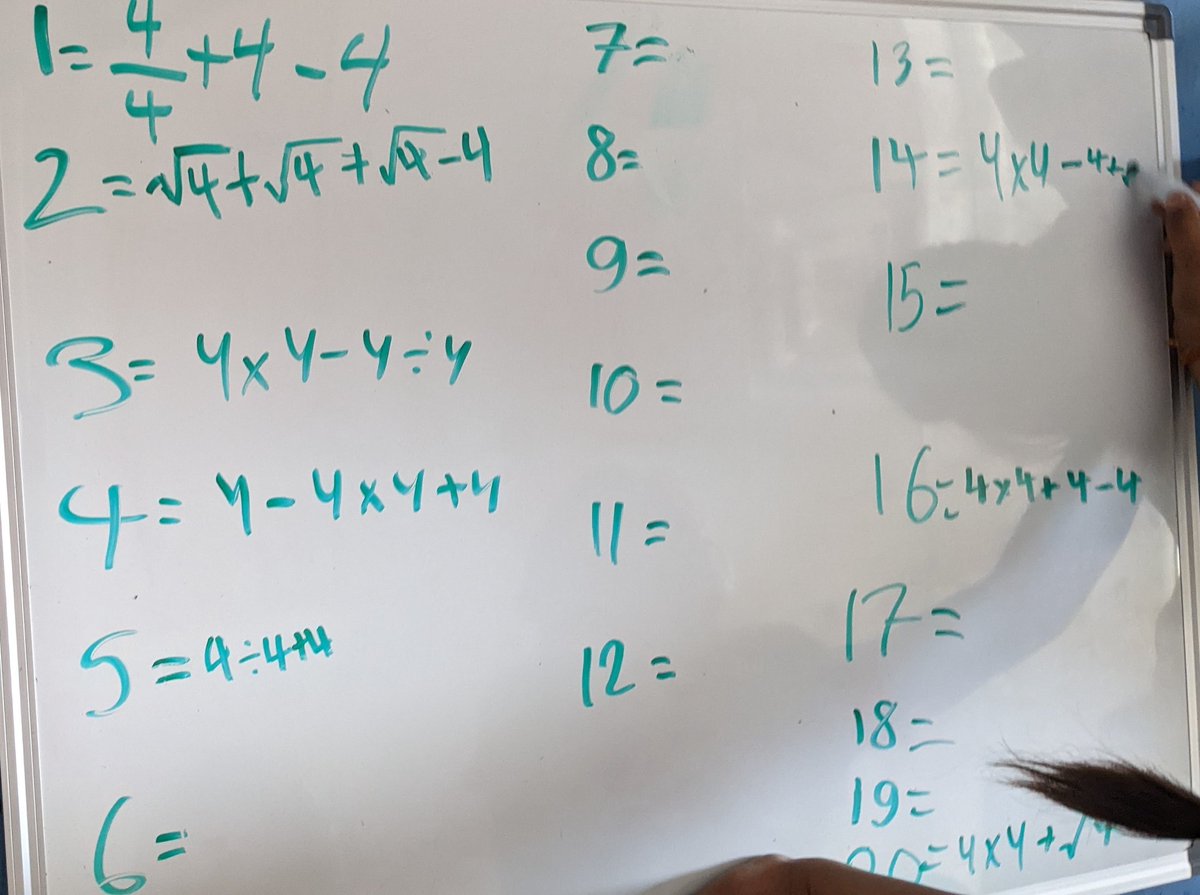 1 = 4/4 + 4 - 4
2 = √4 + √4 + √4 - 4
3 = 4 × 4 - 4 ÷ 4
4 = 4 - 4 × 4 + 4
5 = 4 ÷ 4 + 4
6 =
7 =
8 =
9 =
10 =
11 =
12 =
13 =
14 = 4 × 4 - 4 +
15 =
16 = 4 × 4 + 4 - 4
17 =
18 =
19 =
20 = 4 × 4 + √4